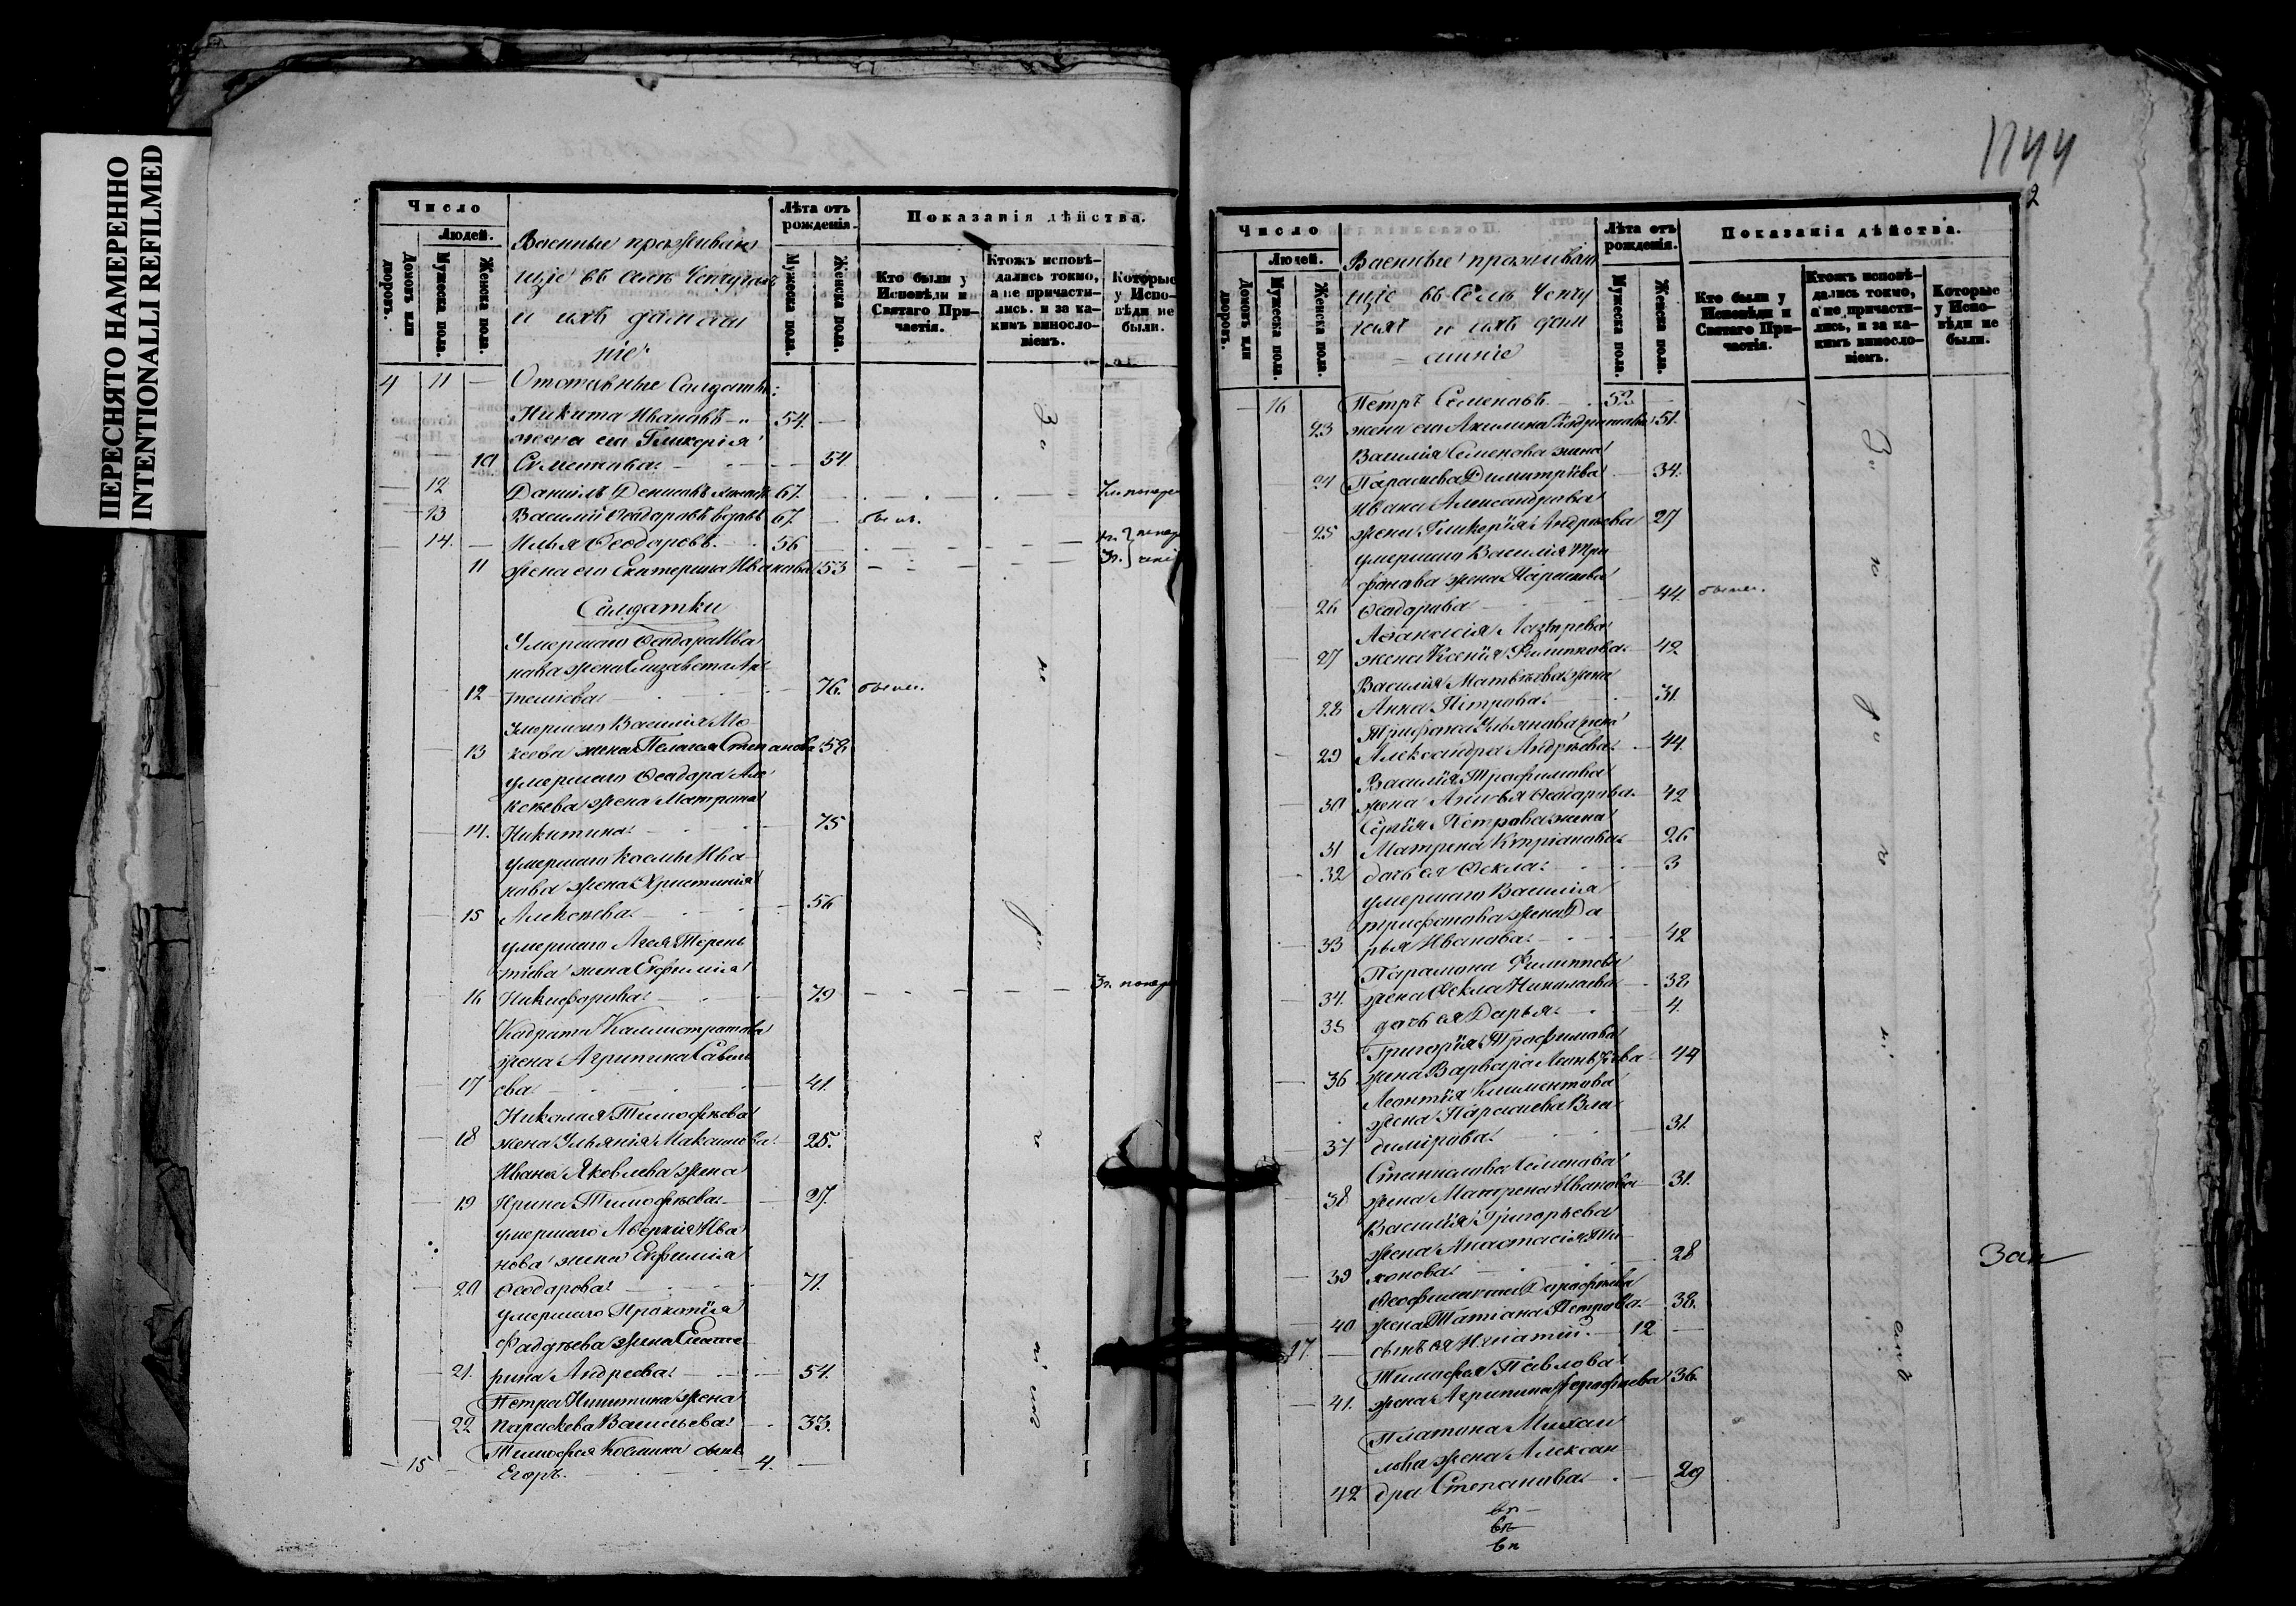 ПЕРЕСНЯТО НАМЕРЕННО
INTENTIONALLI REFILMED
Число
Людей.
Домъ или дворовъ.
Мужеска пола.
Женска пола.
Военные проживаю
щіе въ селѣ
и ихъ домаш
ніе
Лѣта отъ рожденія.
Мужеска пола.
Женска пола.
Показанія дѣйства.
Кто были у Исповѣди и Святаго Причастія.
Ктожъ исповѣ-
дались токмо,
а не причасти-
лись, и за ка-
кимъ винословіемъ.
Которые
у Испо-
вѣди не
были.
4 11 — Отставные Солдаты:
Никита Ивановъ 54.
жена его Гликерія
10 Семенова 54
12 Даніилъ Денисовъ 67.
13 Василій Ѳеодоровъ вдовъ 67 были.
14. Илья Ѳеодоровъ. 56
11 жена его Екатерина Иванова 53
Солдатки
Умершаго Ѳеодора Ива
нова жена Елизавета
12 76. были.
умершаго Василія Мо
13 кеева жена Пелагея Степанова 58
умершаго Ѳеодора Але
ксѣева жена Матрона
14. Никитина 75
умершаго Космы Ива
нова жена Христинія
15 Алексѣева 56
умершаго Терень
тіева жена Евфимія
16 Никифорова 79
Кодрата Каллистратова
жена Агрипина Савель
17 ева 41.
Николая Тимофѣева
18 жена Ульянія Максимова 25.
Ивана Яковлева жена
19 Ирина Тимофѣева 27.
умершаго Аверкія Ива
нова жена Евфимія
20 Ѳеодорова 71.
умершаго Прокопія
Фаддѣева жена Екате
21. рина Андреева 54.
Петра Никитина жена
22 Параскева Васильева 33.
Тимофея Космина сынъ
15 Егоръ. 4.
1744
2
Число
Людей.
Домъ или дворовъ.
Мужеска пола.
Женска пола.
Военные проживаю
щіе въ селѣ
и ихъ дом
ашніе
Лѣта отъ рожденія.
Мужеска пола.
Женска пола.
Показанія дѣйства.
Кто были у Исповѣди и Святаго Причастія.
Ктожъ исповѣ-
дались токмо,
а не причасти-
лись, и за ка-
кимъ винословіемъ.
Которые
у Испо-
вѣди не
были.
16 Петръ Семеновъ 52
23 жена его Акилина 51.
Василія Семенова жена
24 Параскева Димитріева 34.
Ивана Александрова
25 жена Гликерія Андреева 27
умершаго Василія Три
фонова жена Параскева
26 Ѳеодорова 44. были.
Аѳанасія Лазарева
27 жена Ксенія Филиппова 42
Василія Матвѣева жена
28 Анна Петрова 31.
Трифона Ульянова жена
29 Александра Андреева 44.
Василія Трофимова
30 жена Ѳеодорова 42
Сергія Петрова жена
31 Матрена Кипріанова 26
32 дочь ея Ѳекла 3
умершаго Василія
трифонова жена Да
33 рья Иванова 42
Парамона Филиппова
34. жена Ѳекла Николаева 38
35 дочь ея Дарья 4.
Григорія Трофимова
36 жена Варвара 44
Леонтія Климентова
жена Параскева Вла
37 димірова 31.
Станислава Семенова
38 жена Матрена Иванова 31.
Василія Григорьева
жена Анастасія Ти
39 хонова 28
Ѳеофилакта Дорофѣева
40 жена Татіана Петрова 38.
17. сынъ ея Игнатій. 12
Тимофея Павлова
41. жена Агрипина 36.
Платона Михаи
лова жена Алексан
42 дра Степанова 29